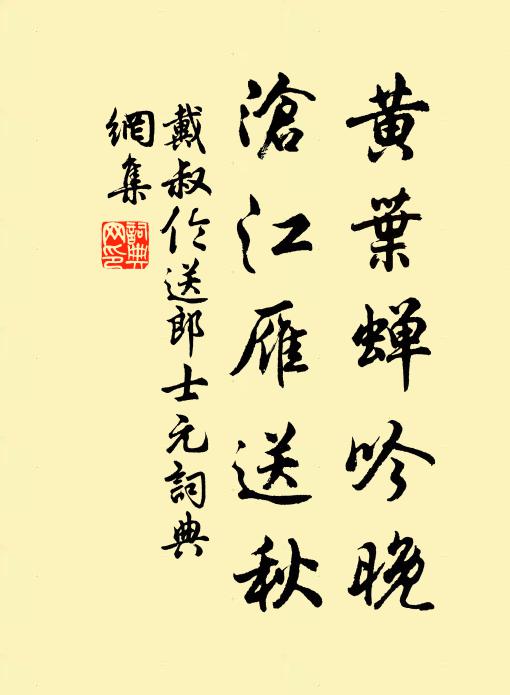 黄葉蝉吟晚
滄江雁送秋
戴叔伦送郎士元詞典
網集
詞典
网印